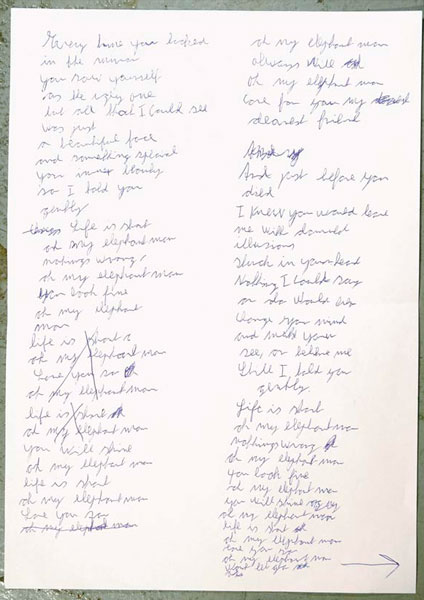 Every time you looked
in the mirror
you saw yourself
as the ugly one
but all that I could see
was just
a beautiful face
and something special
you
so I told you
gently
Life is short
oh my elephant man
nothings wrong,
oh my elephant man
you look fine
oh my elephant
man
life is short
oh my elephant man
Love you so
oh my elephant man
life is
oh my elephant man
You will shine
oh my elephant man
life is short
oh my elephant man
Love you so
oh my elephant man
oh my elephant man
always will
oh my elephant man
care for you my
dearest friend
And just before you
died
I knew you would leave
me with
illusions
Stuck in your head
Nothing I could say
or do would ever
change your mind
and make you
see, or believe me
Still I told you
gently.
Life is short
oh my elephant man
nothings wrong
oh my elephant man
you look fine
oh my elephant man
you will shine
oh my elephant man
life is short
oh my elephant man
love you so
oh my elephant man